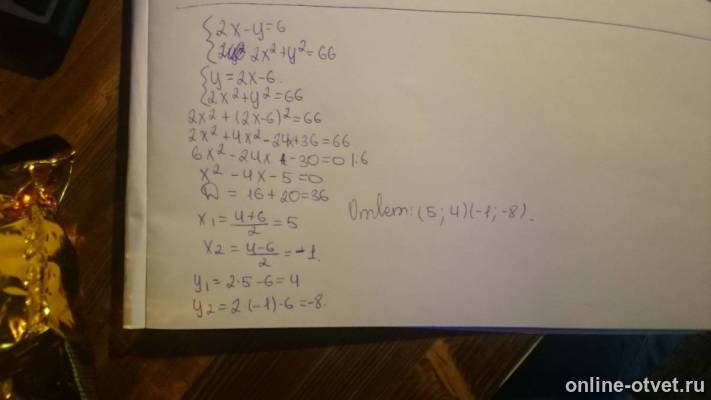 2x-y=6
2x²+y²=66
y=2x-6.
2x²+y²=66
2x²+(2x-6)²=66
2x²+4x²-24x+36=66
6x²-24x-30=0 |:6
x²-4x-5=0
D=16+20=36
x₁=(4+6)/2=5
Ответ: (5; 4)(-1; -8).
x₂=(4-6)/2=-1.
y₁=2·5-6=4
y₂=2(-1)-6=-8.
online-otvet.ru